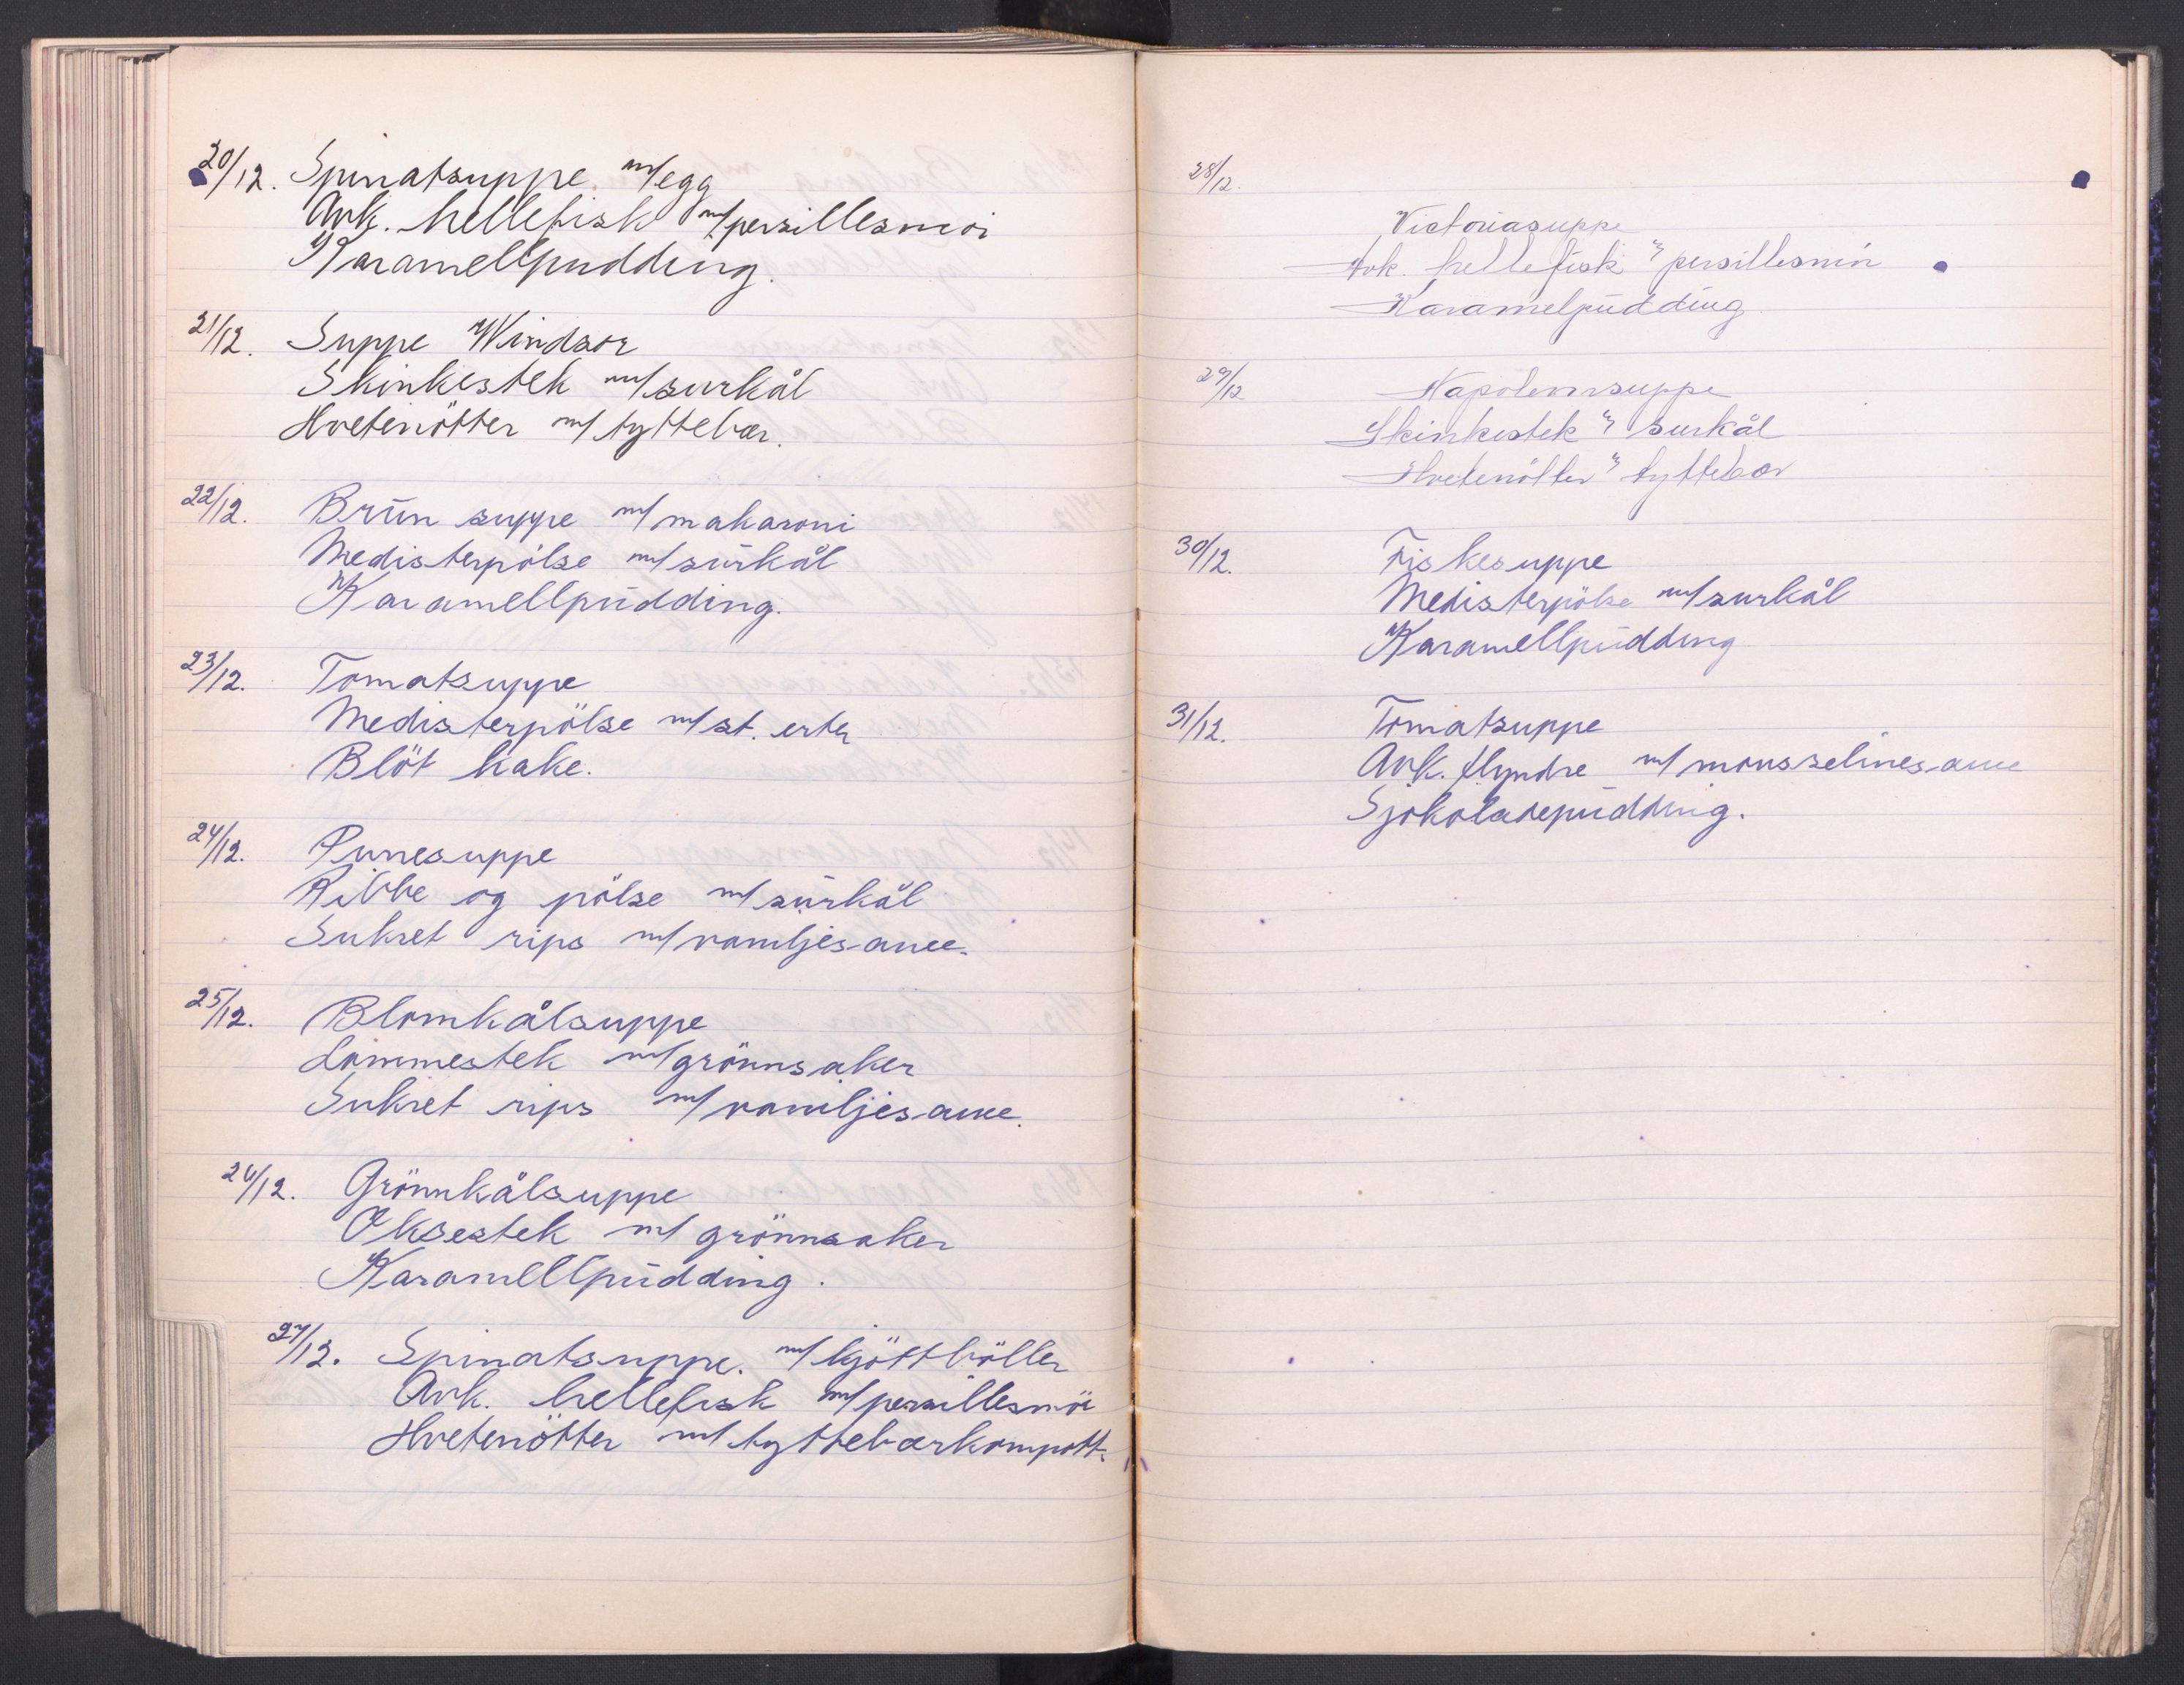 20/12. Spinatsuppe m/egg
Avk. hellefisk m/persillesmör
Karamellpudding.
21/12. Suppe Windsor
Skinkestek m/surkål
Hvetenötter m/tyttebær.
22/12. Brun suppe m/makaroni
Medisterpölse m/surkål
Karamellpudding.
23/12. Tomatsuppe
Medisterpölse m/st. erter
Blöt kake.
24/12. Punesuppe
Ribbe og pölse m/surkål
Sukret rips m/vaniljesauce.
25/12. Blomkålsuppe
Lammestek m/grönnsaker
Sukret rips m/vaniljesauce.
26/12. Grönnkålsuppe
Oksestek m/ grönnsaker
Karamellpudding.
27/12. Spinatsuppe. m/kjöttböller
Avk. hellefisk m/persillesmör
Hvetenötter m/tyttebærkompott.
28/12.
Victoriasuppe
Avk. hellefisk m/ persillesmör
Karamelpudding
29/12 Napoleonsuppe
Skinkestek m/ surkål
Hvetenötter m/ tyttebær
30/12. Fiskesuppe
Medisterpölse m/surkål
Karamellpudding
31/12. Tomatsuppe
Avk. flyndre m/ mousselinesauce
Sjokoladepudding.